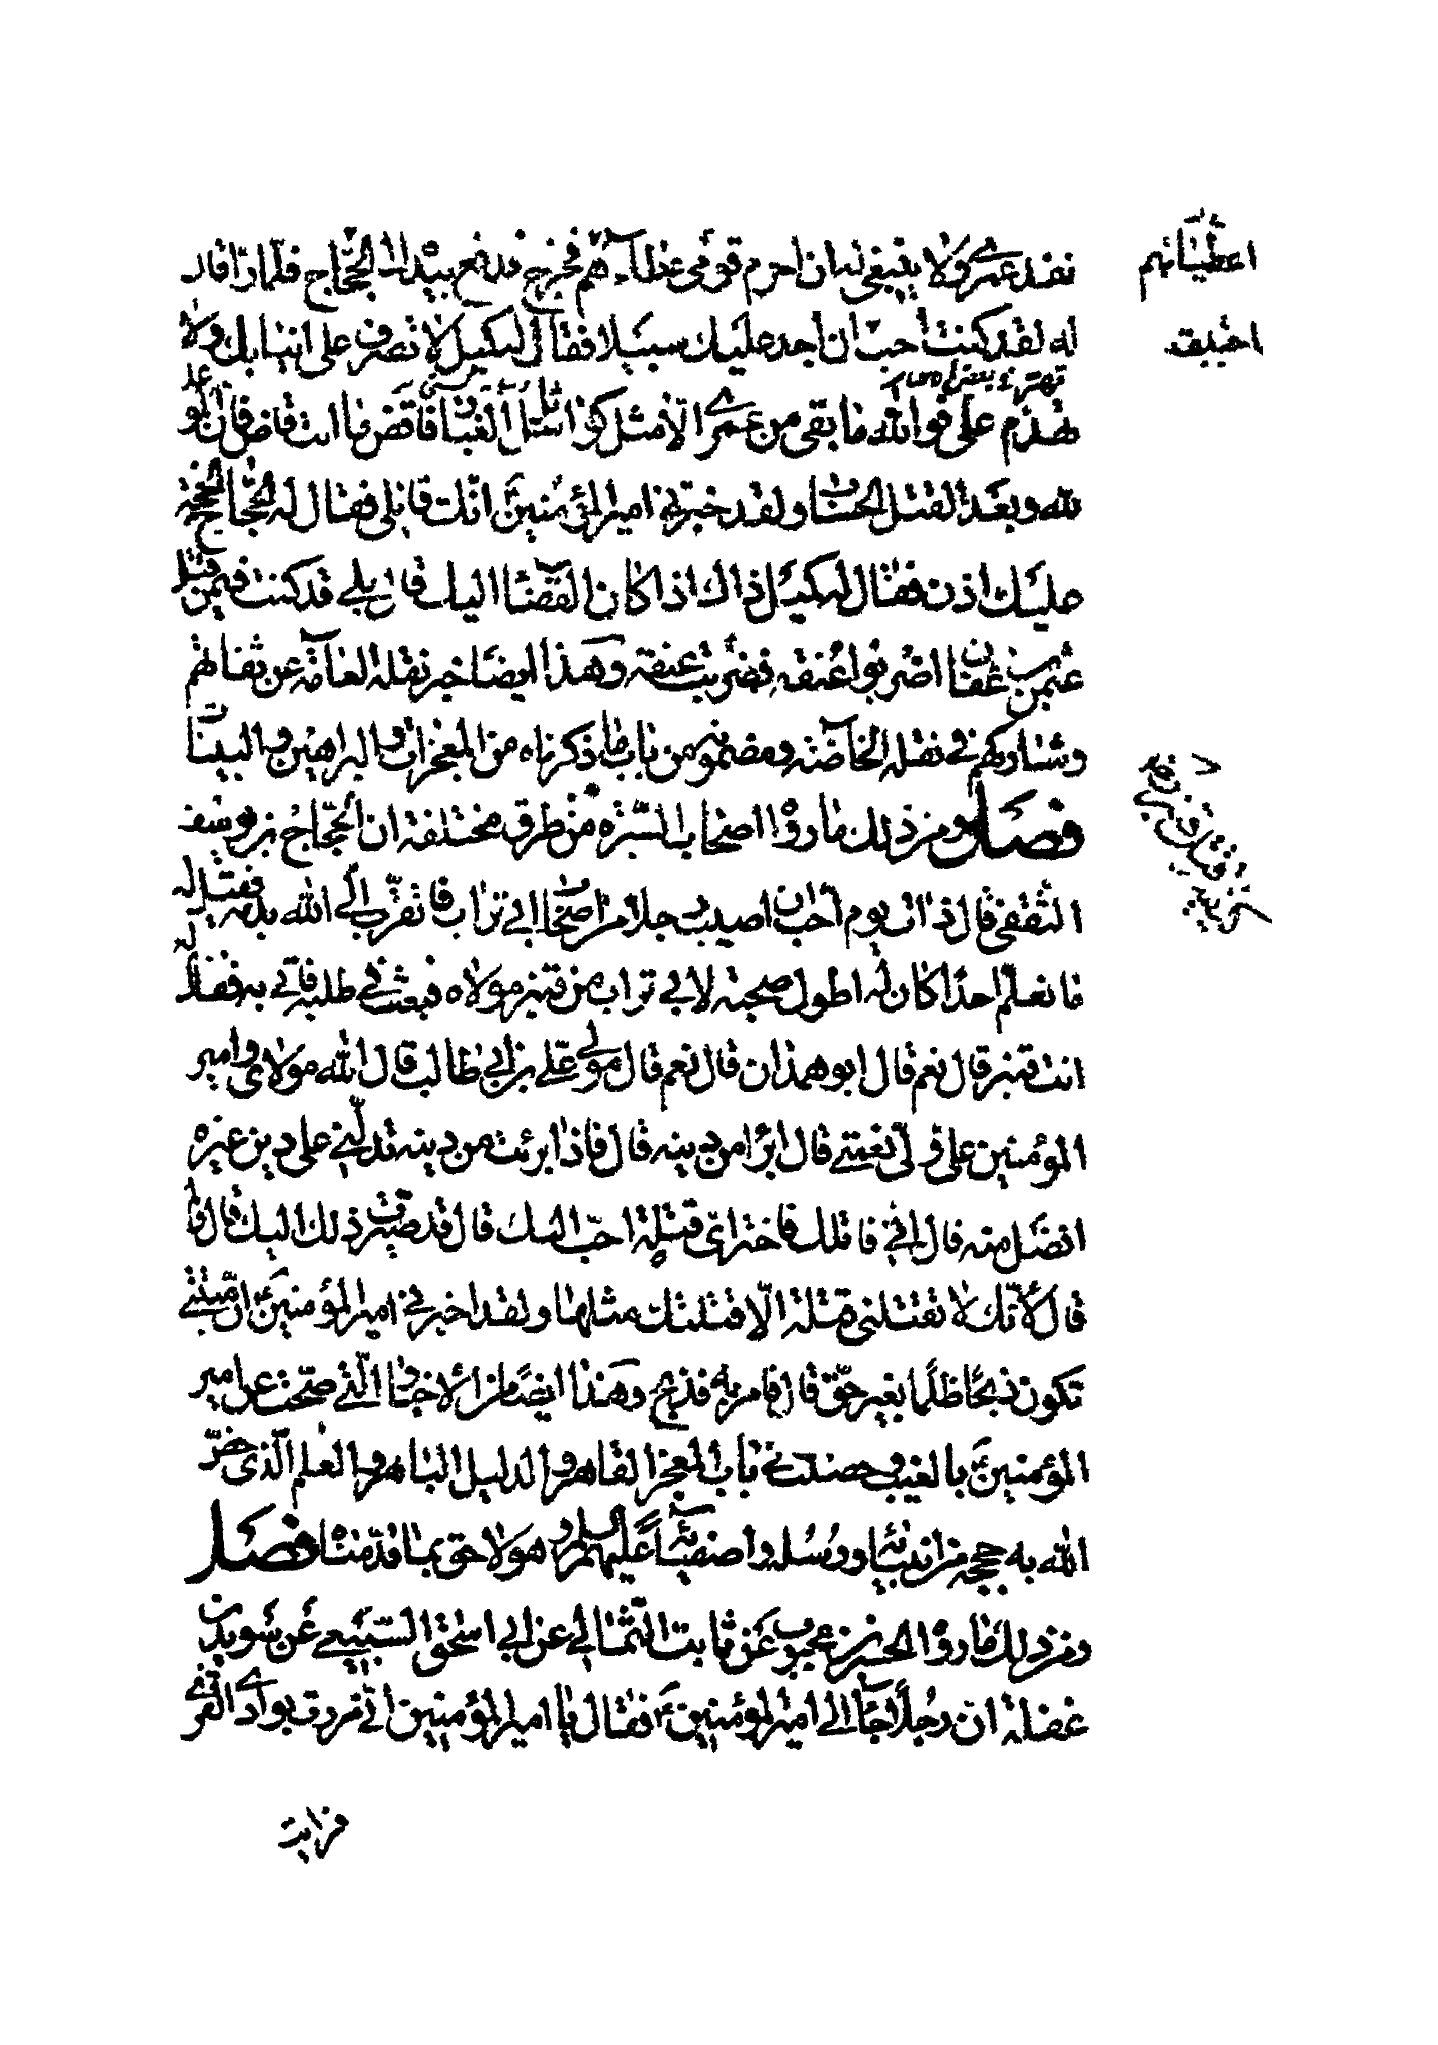 نفد عمري ولا ينبغي لي ان احرم قومي عطاءهم فخرج فدفع بيده الى الحجاج فلما رآه قال
له لقد كنت احب ان اجد عليك سبيلا فقال له كميل لا تصرف علي انيابك ولا
تهدم علي فوالله ما بقي من عمري الا مثل كواسل الغبار فاقض ما انت قاض فان الموعد
لله وبعد القتل الحساب ولقد خبرني امير المؤمنين انك قاتلي فقال له الحجاج الحجة
عليك اذن فقال له كميل ذاك اذا كان القضاء اليك قال بلى قد كنت فيمن قتل
عثمن بن عفان اضربوا عنقه فضربت عنقه وهذا ايضا خبر نقله العامة عن ثقاتهم
وشاركهم في نقله الخاصة ومضمونه من باب ما ذكرناه من المعجزات والبراهين والبينات
فصل ومن ذلك ما رواه اصحاب السيرة من طرق مختلفة ان الحجاج بن يوسف
الثقفي قال ذات يوم احب ان اصيب رجلا من اصحاب ابي تراب فاتقرب الى الله بدمه فقيل له
ما نعلم احدا كان له اطول صحبة لابي تراب من قنبر مولاه فبعث في طلبه فاتي به فقال له
انت قنبر قال نعم قال ابو همدان قال نعم قال مولى علي بن ابي طالب قال الله مولاي وامير
المؤمنين علي ولي نعمتي قال ابرأ من دينه قال فاذا برئت من دينه تدلني على دين غيره
افضل منه قال اني قاتلك فاختر اي قتلة احب اليك قال قد صيرت ذلك اليك قال ولم
قال لانك لا تقتلني قتلة الا قتلتك مثلها ولقد اخبرني امير المؤمنين ان ميتتي
تكون ذبحا ظلما بغير حق قال فامر به فذبح وهذا ايضا من الاخبار التي صحت عن امير
المؤمنين بالغيب وحصلت في باب المعجز القاهر والدليل الباهر والعلم الذي خص
الله به حججه من انبيائه ورسله واصفيائه عليهم السلم وهو لاحق بما قدمناه فصل
ومن ذلك ما رواه الحسن بن محبوب عن ثابت الثمالي عن ابي اسحق السبيعي عن سويد بن
غفلة ان رجلا جاء الى امير المؤمنين فقال يا امير المؤمنين اني مررت بوادي القرى
فرايت
اعطياتهم